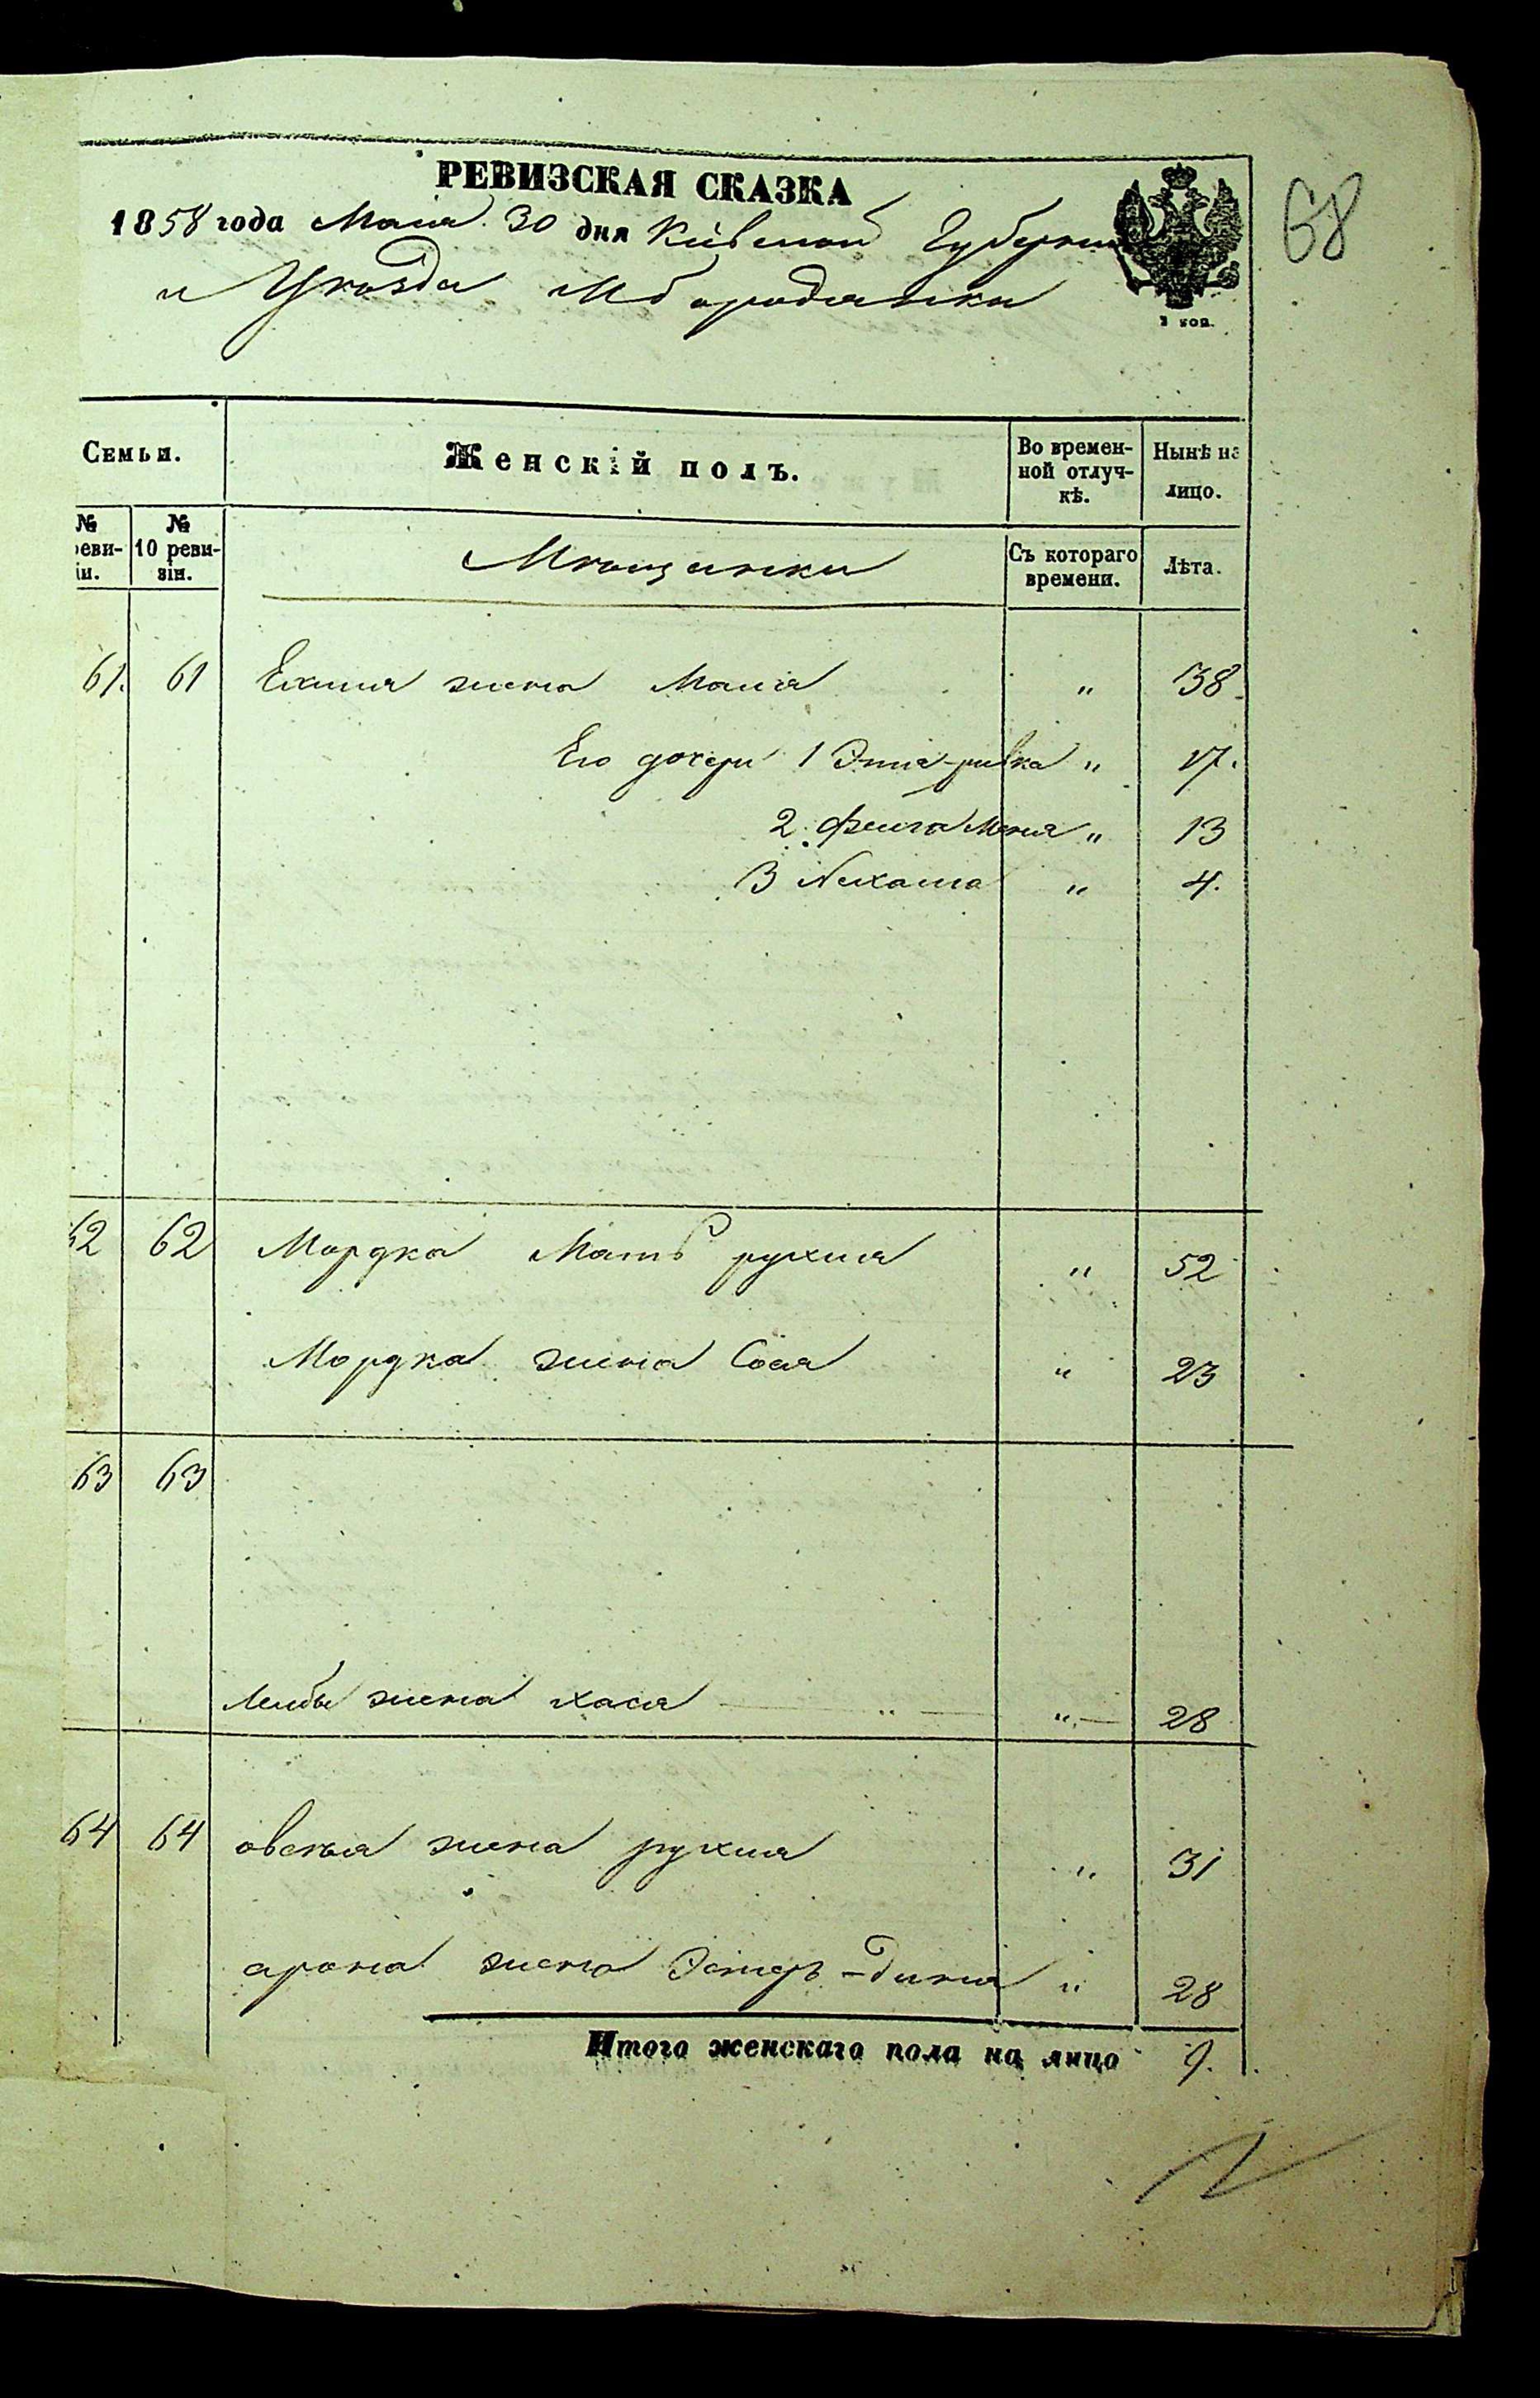 РЕВИЗСКАЯ СКАЗКА
68
1858 года Маія 30 дня Кіевской Губерніи
и Уѣзда М Бородянки
1 коп.
Семьи.
Женскій полъ.
Во времен-
ной отлуч-
кѣ.
Нынѣ на
лицо.
№
реви-
іи.
№
10 реви-
зіи.
Мѣщанки
Съ котораго
времени.
Лѣта.
61. 61 жена Маня " 38.
Его дочери 1 Этя-ривка " 17.
2. Фейга Меня " 13
3 Нехама " 4.
62 62 Мордка Мать рухля " 52
Мордка жена Сося " 23
63 63
Лейбы жена хася " 28
64 64 овсея жена рухля " 31
арона жена Эстеръ-Диня " 28
Итого женскаго пола на лицо 9.